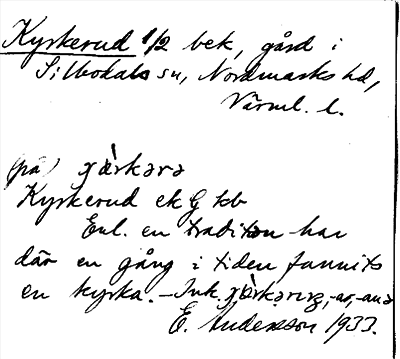 Kyrkerud 1/2 bek, gård i
Silbodals sn, Nordmarks hd,
Värml. l.
(på)
Kyrkerud ek G kb
Enl. en tradition har
där en gång i tiden funnits
en kyrka. – Ink.
E. Andersson 1933.